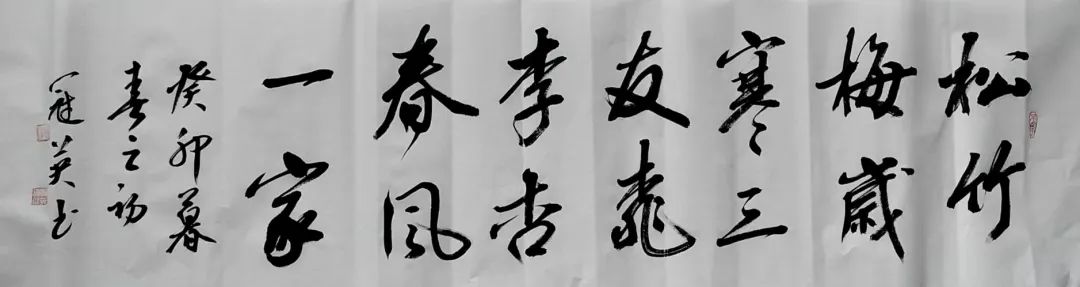 松竹
梅歲
寒三
友桃
李杏
春风
一家
癸卯暮
春之初
冠英书